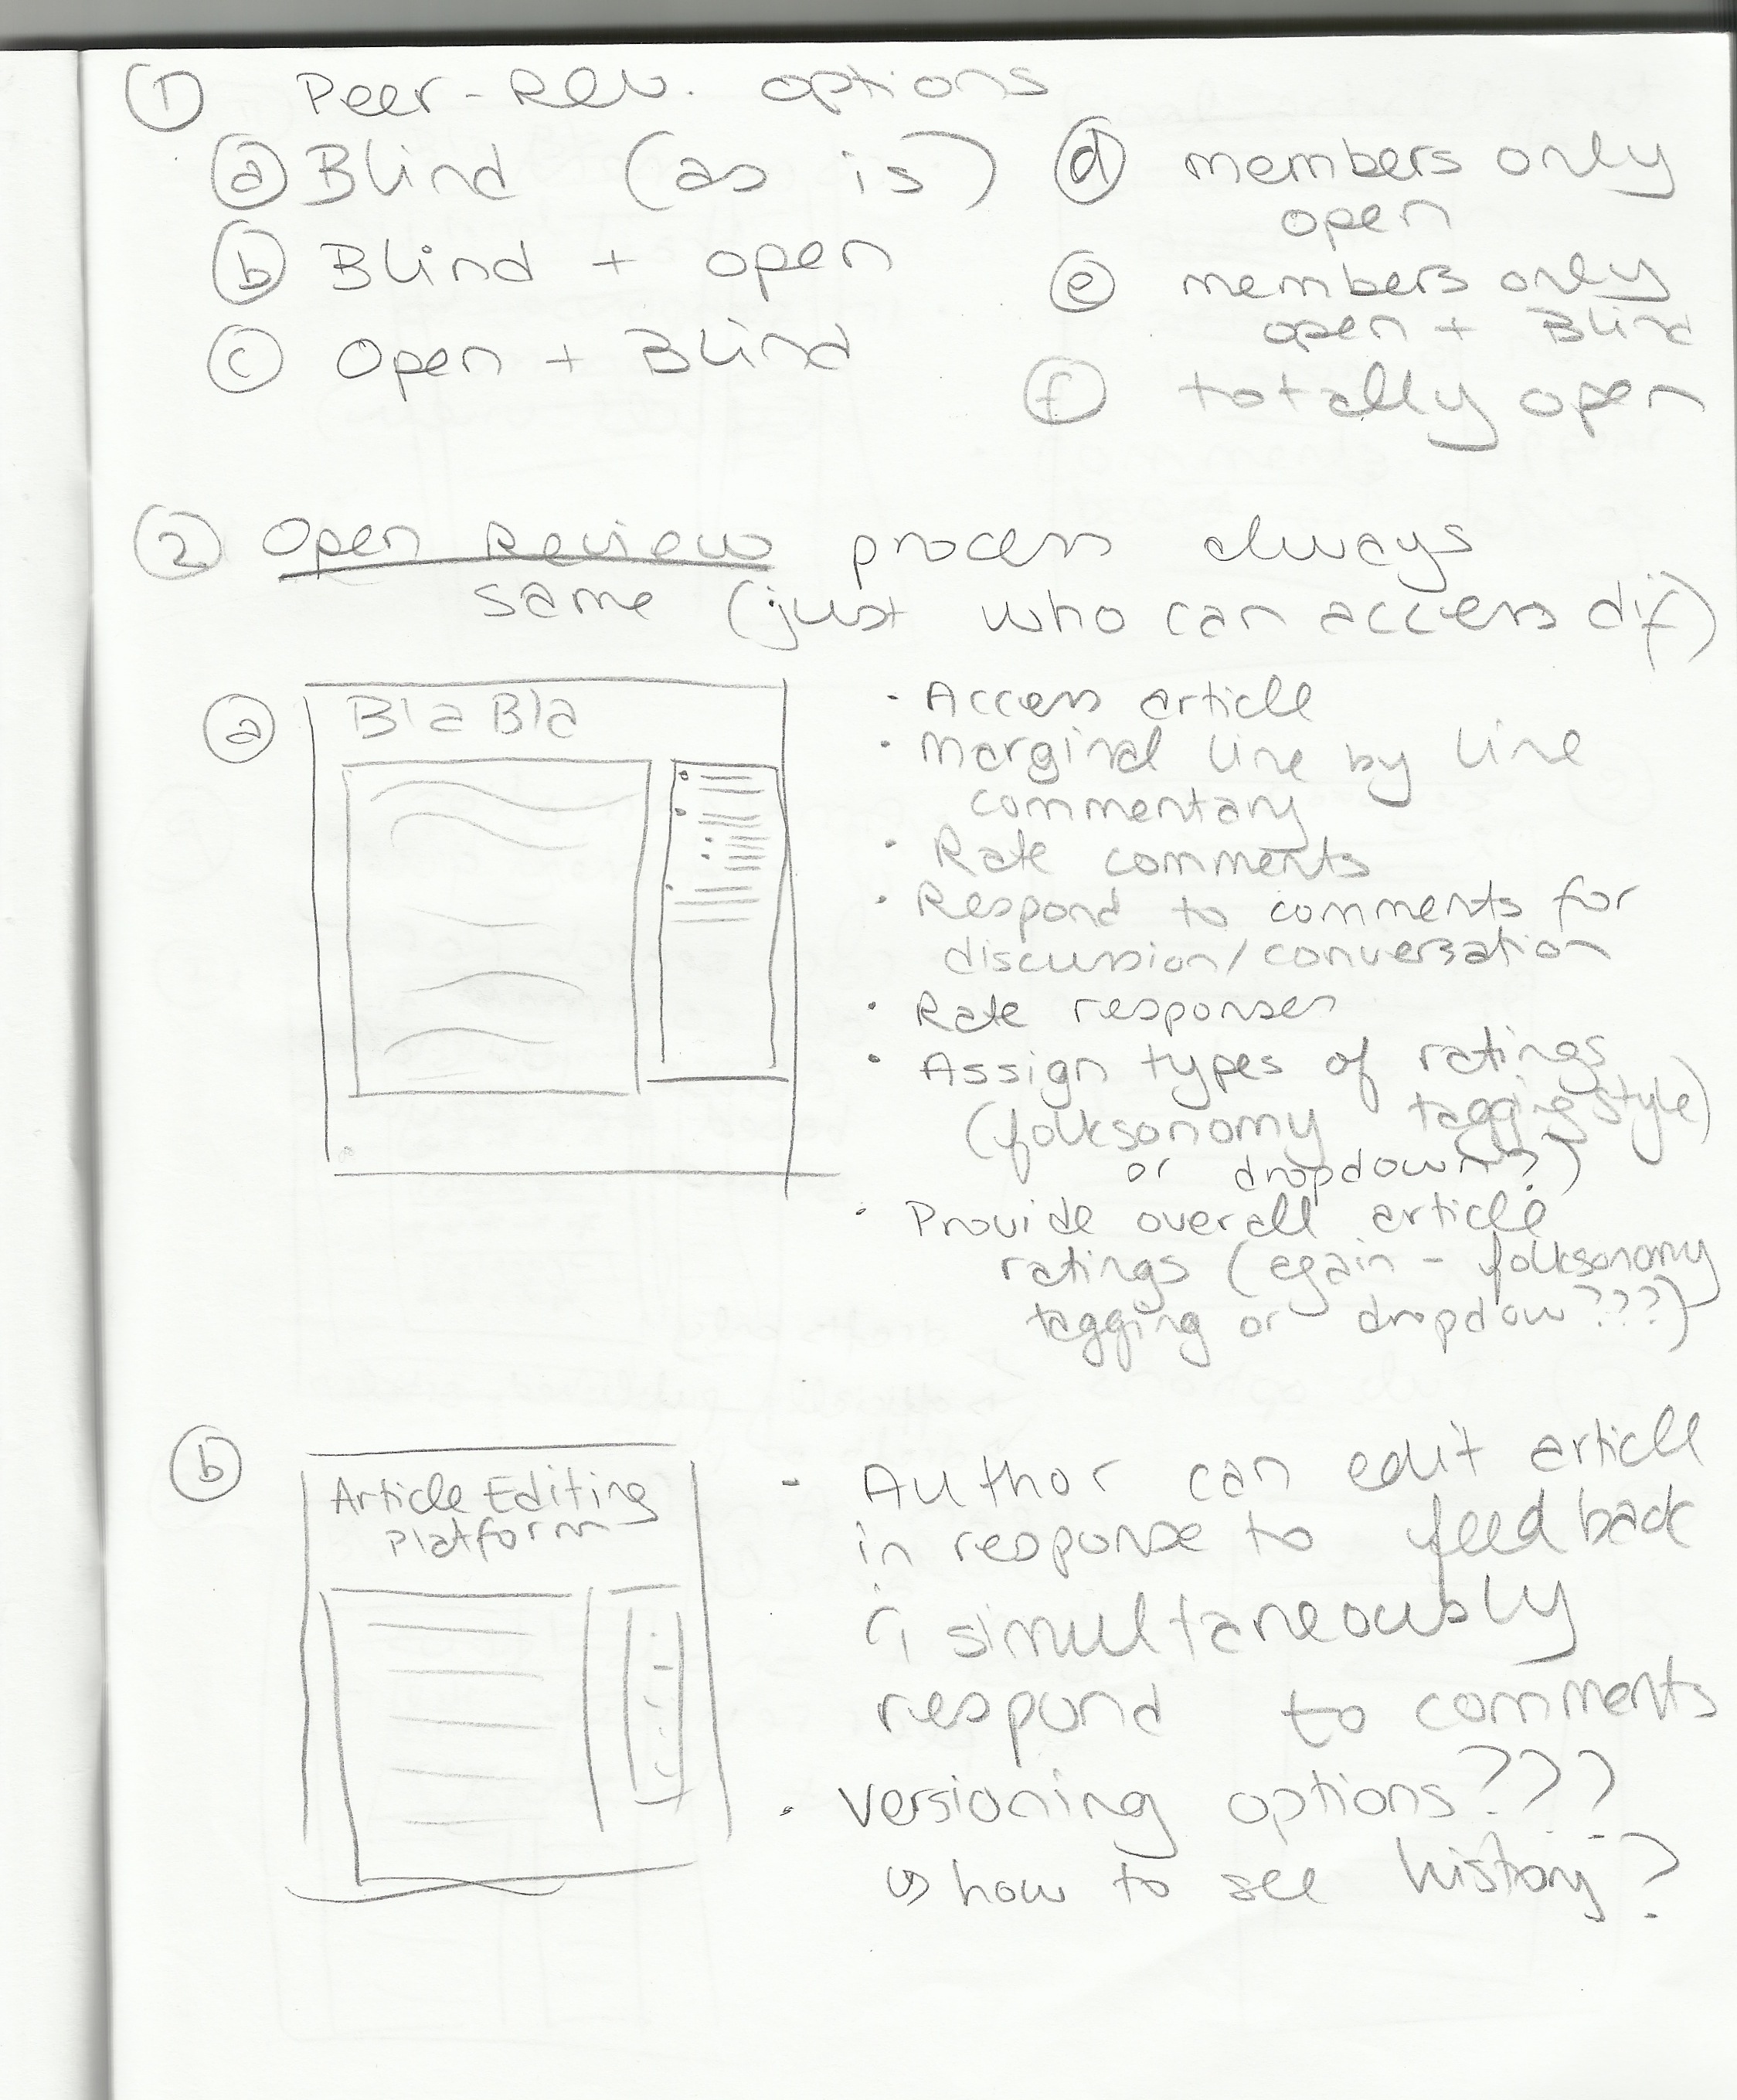 ① Peer-Rev. options
ⓐ Blind (as is)
ⓑ Blind + open
ⓒ Open + Blind
ⓓ members only
open
ⓔ members only
open + Blind
ⓕ totally open
② Open Review process always
same (just who can access dif)
ⓐ Bla Bla
· Access article
· Marginal line by line
commentary
· Rate comments
· Respond to comments for
discussion/conversation
· Rate responses
· Assign types of ratings
(folksonomy tagging style)
or dropdown?)
· Provide overall article
ratings (again - folksonomy
tagging or dropdow???)
ⓑ Article Editing
Platform
- Author can edit article
in response to feedback
simultaneously
respond to comments
· versioning options???
↳ how to see history?